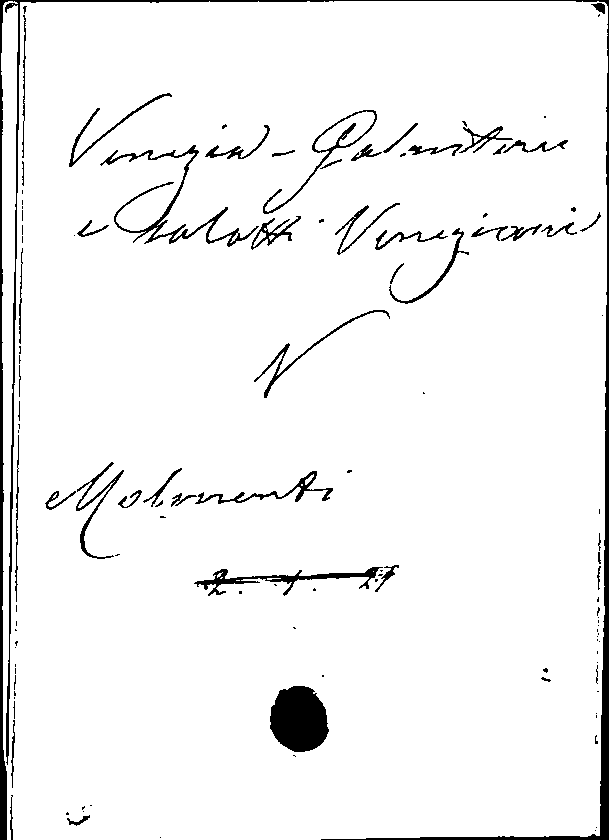 Venezia - Galanterie
e salotti Veneziani
V
Molmenti
2. 1. 21